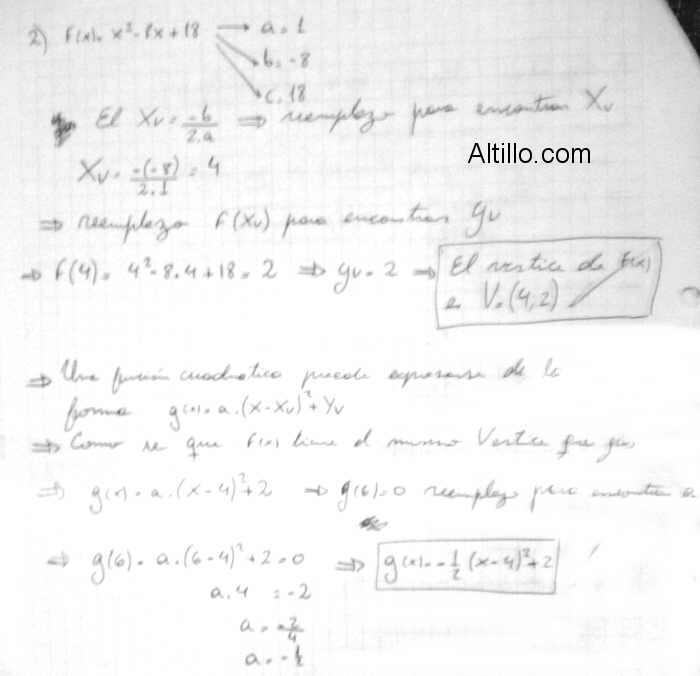 2) f(x)= x²-8x+18 → a=1
b=-8
c=18
El Xv = -b/2.a ⇒ reemplazo para encontrar Xv
Altillo.com
Xv = -(-8)/2.1 = 4
⇒ reemplazo f(Xv) para encontrar yv
⇒ f(4) = 4²-8.4+18 = 2 ⇒ yv = 2 ⇒ El vertice de f(x)
es V=(4,2)
⇒ Una función cuadratica puede expresarse de la
forma g(x)= a.(x-Xv)²+Yv
⇒ Como se que f(x) tiene el mismo Vertice que g(x)
⇒ g(x) = a.(x-4)²+2 ⇒ g(6)=0 reemplazo para encontrar a
⇒ g(6) = a.(6-4)²+2=0 ⇒ g(x)=-1/2 (x-4)²+2
a.4 = -2
a = -2/4
a = -1/2